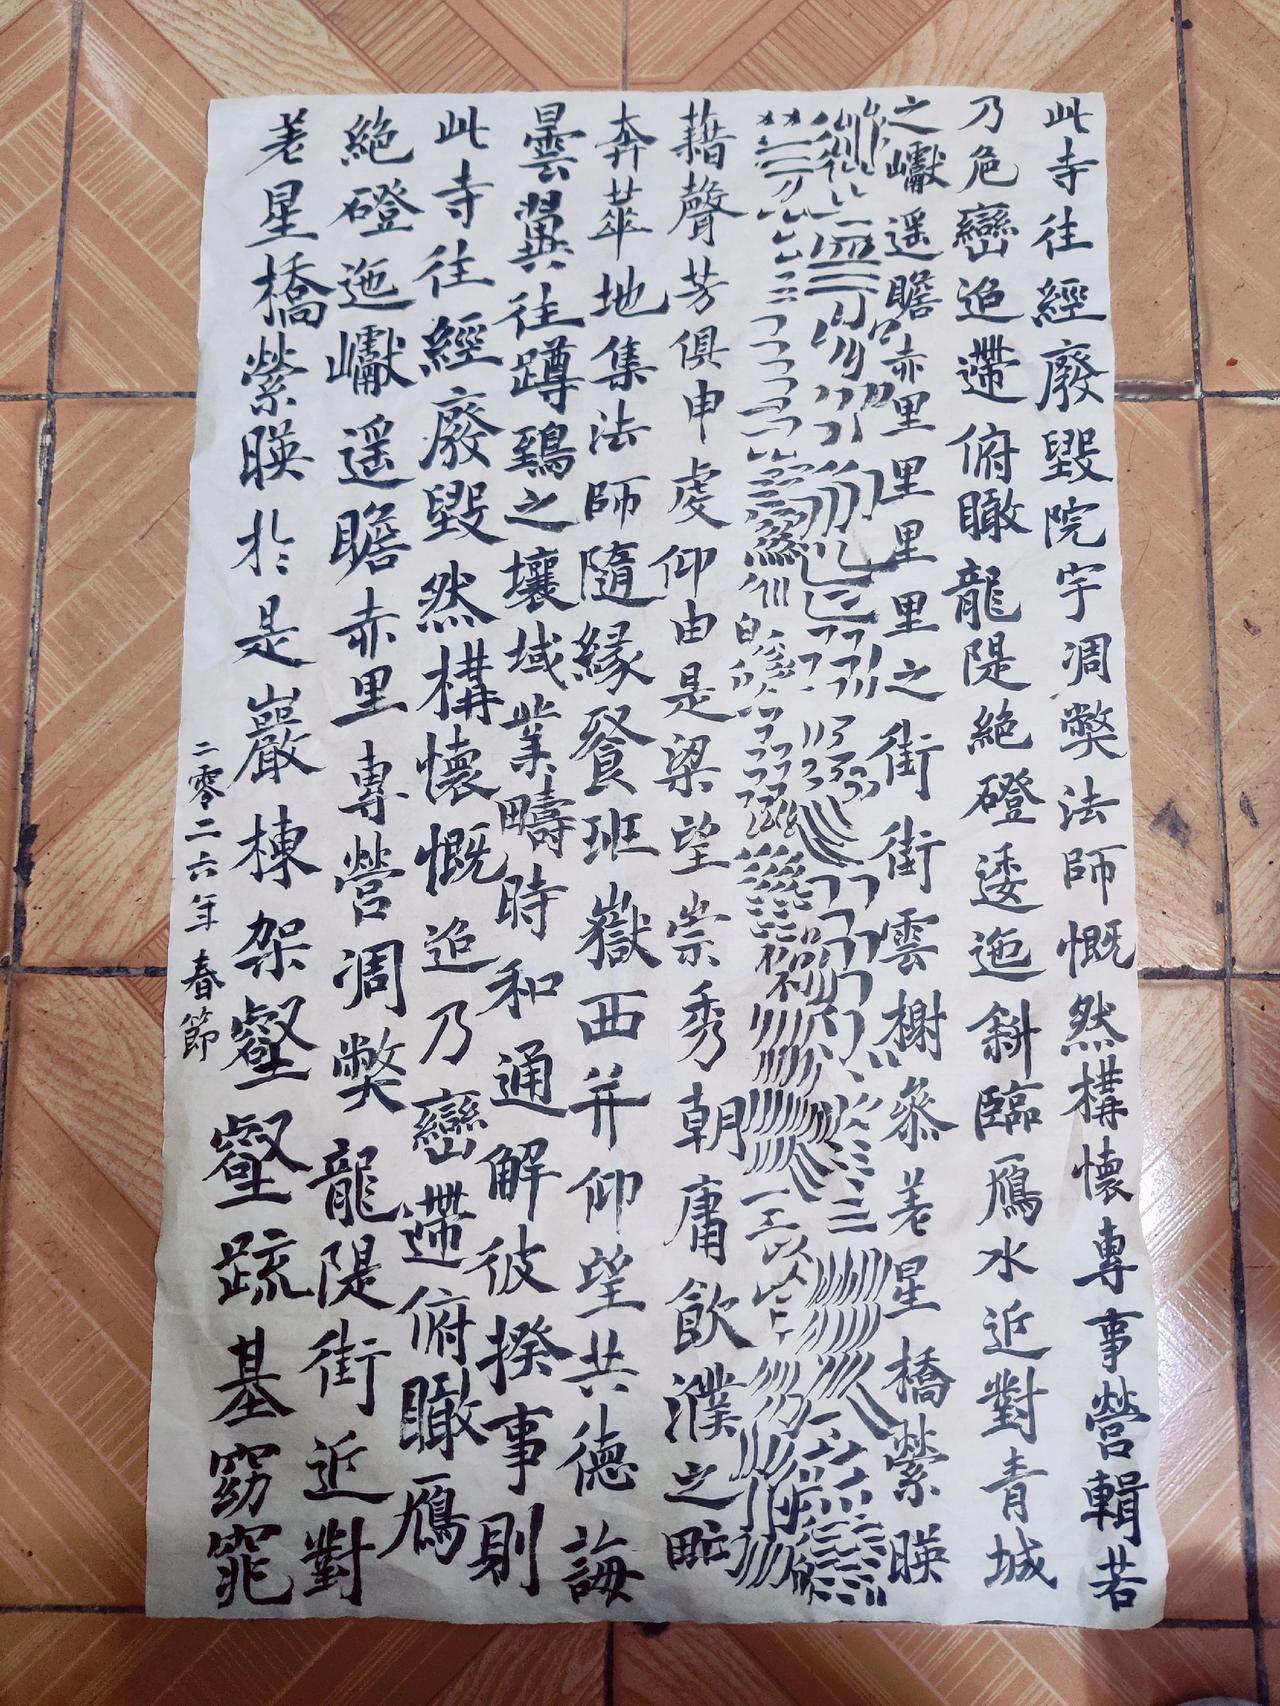 此寺往經廢毀院宇凋弊法師慨然構懷專事營輯若
乃危巒迨遰俯瞰龍隄絕磴逶迤斜臨鴈水近對青城
之巘遥瞻赤里里里里之街街雲榭叅差星橋縈暎
藉聲芳俱申虔仰由是梁望崇秀朝庸飲濮之甿
奔萃地集法師隨緣餐班嶽西并仰望共德誨
曇翼往蹲鵄之壤域業疇時和通解彼揆事則
此寺往經廢毀然構懷慨迨乃巒遰俯瞰鴈
絕磴迤巘遥瞻赤里專營凋弊龍隄街近對
差星橋縈暎於是巖棟架壑壑疏基窈窕
二零二六年春節